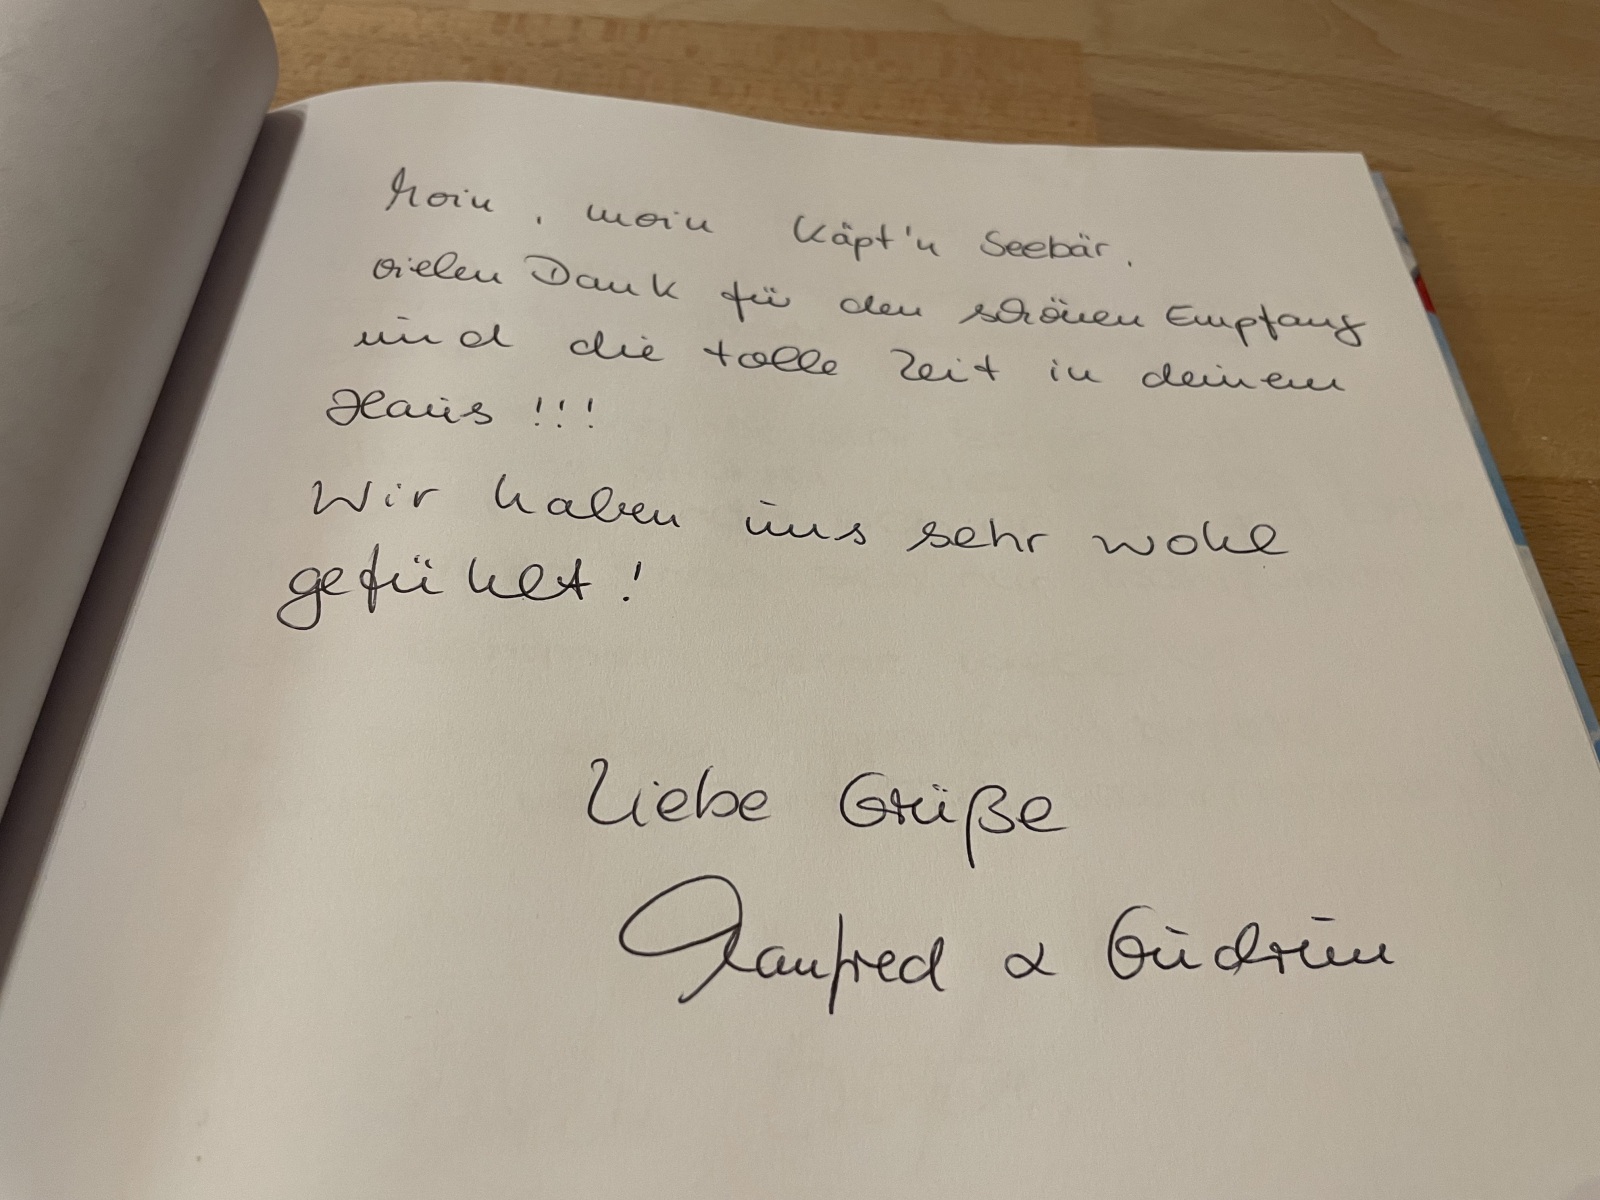 Moin, moin Käpt'n Seebär,
vielen Dank für den schönen Empfang
und die tolle Zeit in deinem
Haus !!!
Wir haben uns sehr wohl
gefühlt !
Liebe Grüße
Manfred & Gudrun